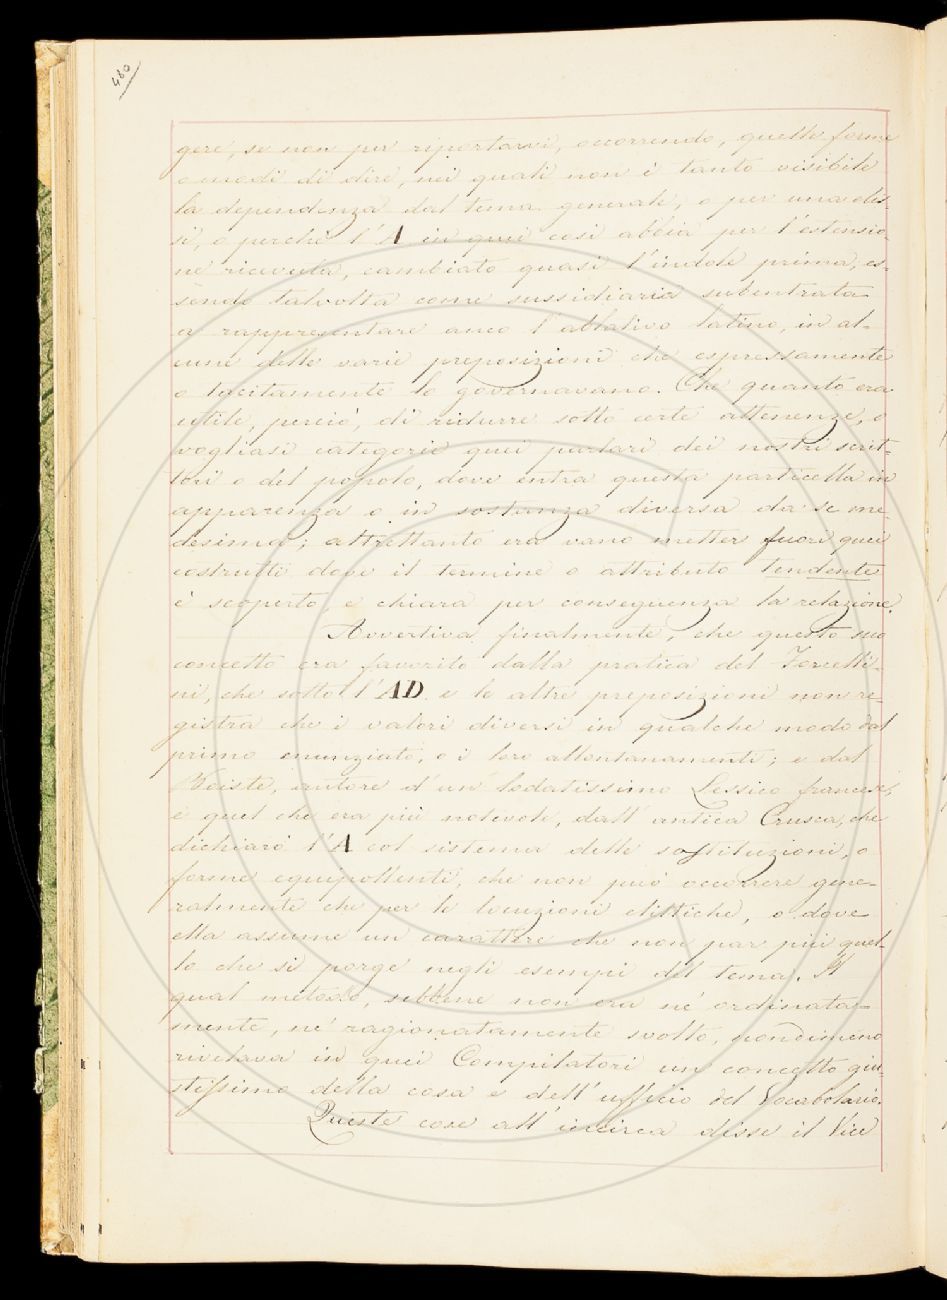 480
gere, se non per riportarvi, occorrendo, quelle forme
o modi di dire, nei quali non è tanto visibile
la dipendenza dal tema generale, o per una elis-
si, o perchè l'A in quei casi abbia per l'estensio-
ne ricevuta, cambiato quasi l'indole prima, es-
sendo talvolta come sussidiaria subentrata
a rappresentare anco l'ablativo latino, in al-
cune delle varie preposizioni che espressamente
o tacitamente lo governavano. Che quanto era
utile, perciò, di ridurre sotto certe attenenze, o
vogliasi categorie quei parlari dei nostri scrit-
tori o del popolo, dove entra questa particella in
apparenza o in sostanza diversa da se me-
desima; altrettanto era vano metter fuori quei
costrutti dove il termine o attributo tendente
è scoperto, e chiara per conseguenza la relazione.
Avvertiva finalmente, che questo suo
concetto era favorito dalla pratica del Forcelli-
ni, che sotto l'AD e le altre preposizioni non re-
gistra che i valori diversi in qualche modo dal
primo enunziato, o i loro allontanamenti; e dal
Boiste, autore d'un lodatissimo Lessico francese,
e quel che era più notevole, dall'antica Crusca, che
dichiarò l'A col sistema delle sostituzioni, o
forme equipollenti, che non può occorrere gene-
ralmente che per le locuzioni elittiche, o dove
ella assume un carattere che non par più quel-
lo che si porge negli esempi del tema. Il
qual metodo, sebbene non era nè ordinata-
mente, nè ragionatamente svolto, nondimeno
rivelava in quei Compilatori un concetto giu-
stissimo della cosa e dell'ufficio del Vocabolario.
Queste cose all'incirca disse il Vice